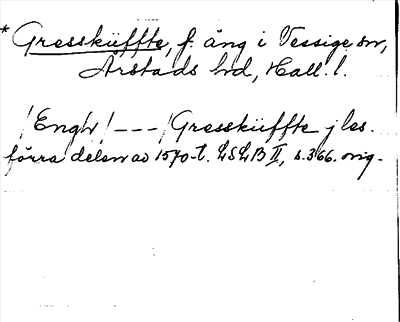 * Gresskiffte, f. äng i Vessige sn,
Årstads hd, Hall. l.
/Engh/ --- /Gresskiffte j les.
förra delen av 1570-t. LSLB II, s. 366. orig.